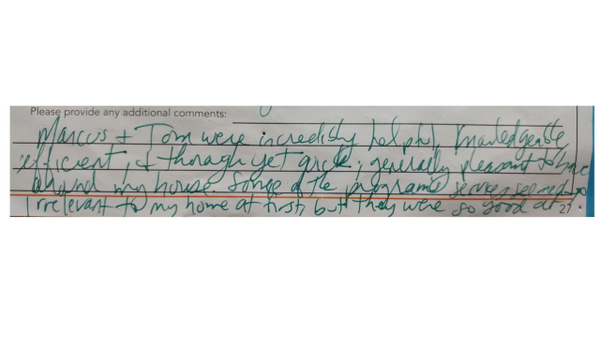 Please provide any additional comments:
Marcus + Tom were incredibly helpful, knowledgeable
efficient, + thorough yet quick, generally pleasant to have
around my house. Some of the programs services seemed so
irrelevant to my home at first, but they were so good at
27